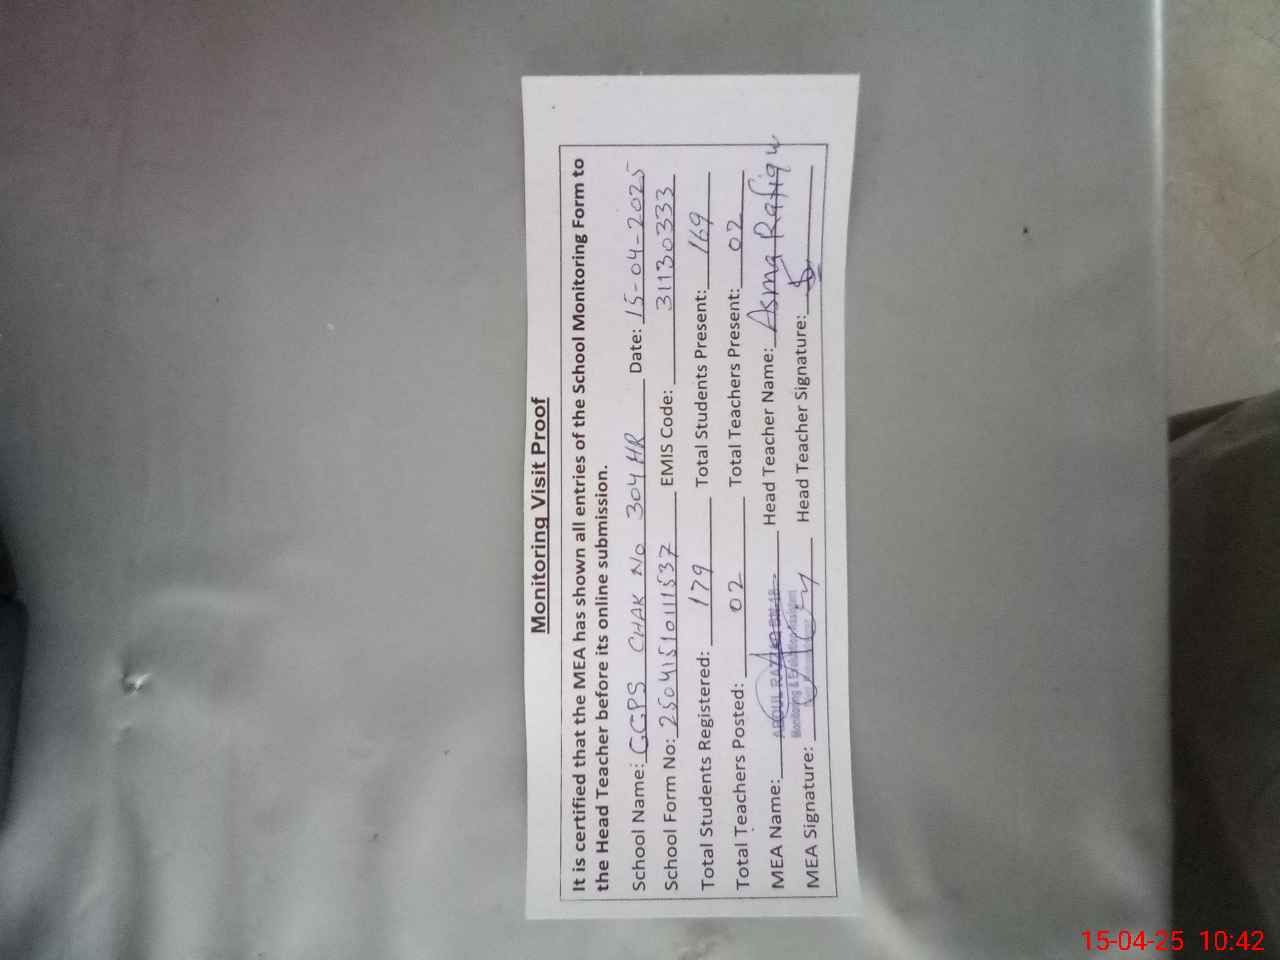 Monitoring Visit Proof
It is certified that the MEA has shown all entries of the School Monitoring Form to
the Head Teacher before its online submission.
School Name: GGPS CHAK No 304 HR Date: 15-04-2025
School Form No: 25041510111537 EMIS Code: 31130333
Total Students Registered: 179 Total Students Present: 169
Total Teachers Posted: 02 Total Teachers Present: 02
MEA Name: ABDUL Head Teacher Name: Asma Rafiq
Monitoring &
MEA Signature: Head Teacher Signature:
15-04-25 10:42